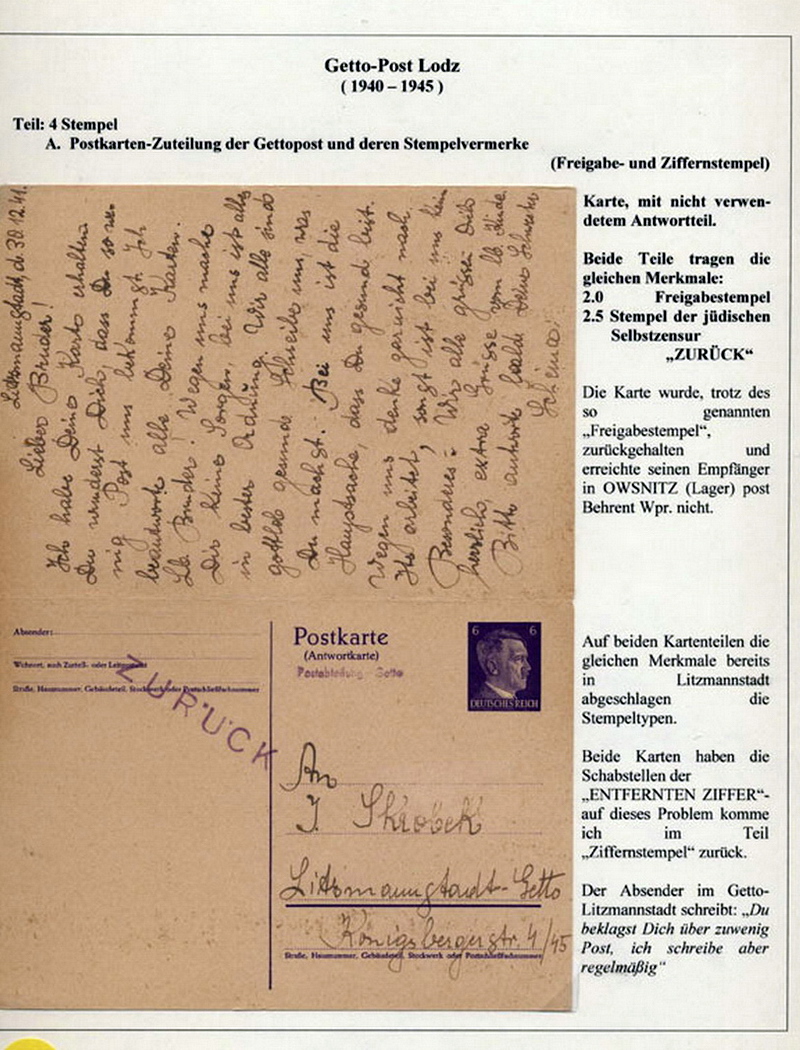 Getto-Post Lodz
( 1940 – 1945 )
Teil: 4 Stempel
A. Postkarten-Zuteilung der Gettopost und deren Stempelvermerke
(Freigabe- und Ziffernstempel)
Litzmannstadt, d. 30.12.41.
Lieber Bruder!
Ich habe Deine Karte erhalten
Du wunderst Dich, dass Du so we-
nig Post uns bekommst. Ich
beantworte alle Deine Karten.
Lb. Bruder! Wegen uns mache
Dir keine Sorgen, bei uns ist alles
in bester Ordnung. Wir alle sind
gottlob gesund. Schreibe uns, was
Du machst. Bei uns ist die
Hauptsache, dass Du gesund bist.
Wegen uns denke gar nicht nach.
arbeitet, sonst ist bei uns kein
Besonderes. Wir alle grüssen Dich
herzlich, extra Grüsse vom lb. Kinde.
Bitte antworte bald. Deine Schwester
Karte, mit nicht verwen-
detem Antwortteil.
Beide Teile tragen die
gleichen Merkmale:
2.0 Freigabestempel
2.5 Stempel der jüdischen
Selbstzensur
„ZURÜCK“
Die Karte wurde, trotz des
so genannten
„Freigabestempel“,
zurückgehalten und
erreichte seinen Empfänger
in OWSNITZ (Lager) post
Behrent Wpr. nicht.
Absender:
Wohnort, auch Zustell- oder Leitpostamt
Straße, Hausnummer, Gebäudeteil, Stockwerk oder Postschließfachnummer
ZURÜCK
Postkarte
(Antwortkarte)
Postabteilung Getto
6 6
DEUTSCHES REICH
An
J. Skrobek
Litzmannstadt-Getto
Königsbergerstr. 4/45
Straße, Hausnummer, Gebäudeteil, Stockwerk oder Postschließfachnummer
Auf beiden Kartenteilen die
gleichen Merkmale bereits
in Litzmannstadt
abgeschlagen die
Stempeltypen.
Beide Karten haben die
Schabstellen der
„ENTFERNTEN ZIFFER“-
auf dieses Problem komme
ich im Teil
„Ziffernstempel“ zurück.
Der Absender im Getto-
Litzmannstadt schreibt: „Du
beklagst Dich über zuwenig
Post, ich schreibe aber
regelmäßig“